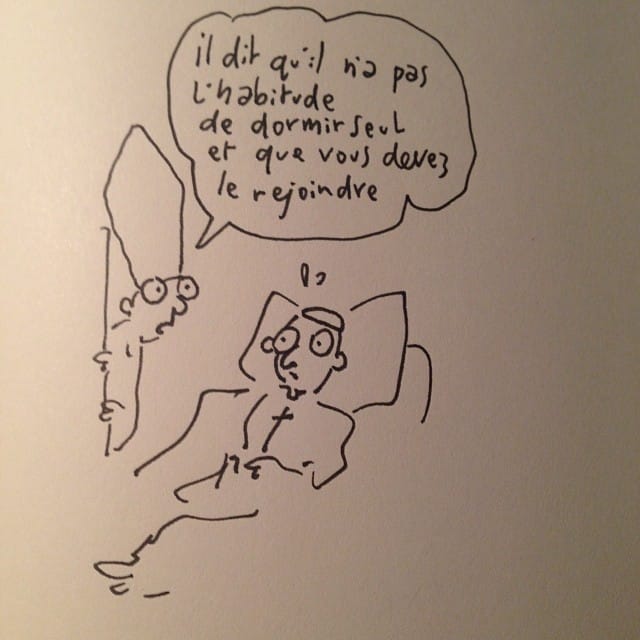 il dit qu'il n'a pas
l'habitude
de dormir seul
et que vous devez
le rejoindre